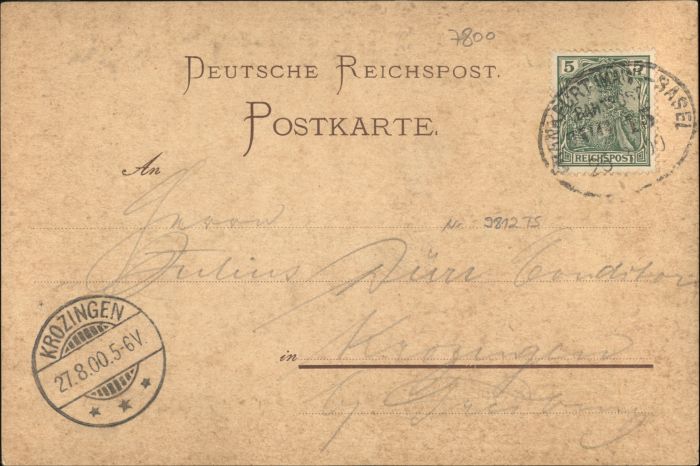 7800
DEUTSCHE REICHSPOST.
POSTKARTE.
5 5
REICHSPOST
BASEL
BAHNPOST
An
Herrn
Nr. 9812 TS
Julius Dürr Conditor
KROZINGEN
27.8.00.5-6V.
in Krozingen